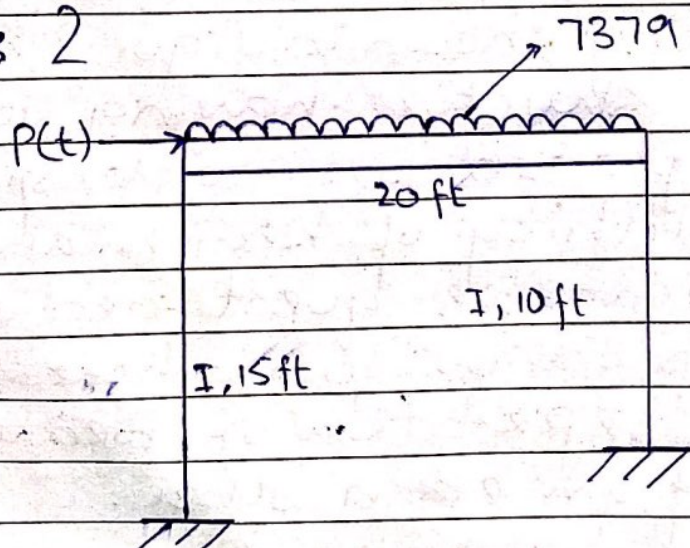 : 2
7379
P(t)
20 ft
I, 10 ft
I, 15 ft